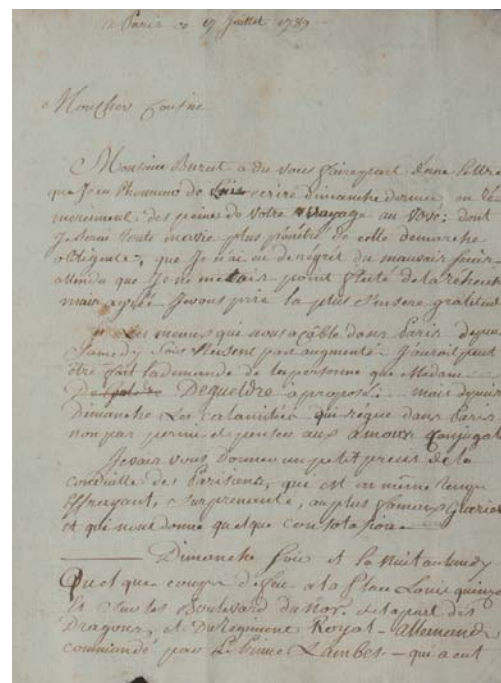 a Paris ce 17 Juillet 1789
Mon Cher Cousin
Monsieur Burut a du vous faire part d'une lettre
que J'eu l'honneur de lui ecrire dimanche dernier, en re
merciment des peines de votre voyage au : dont
Je serai toute ma vie plus pénétré de cette demarche
obligente, que Je n'ai eu de regrit du mauvais
attendu que Je ne m'etais point flaté de la réusite
mais agrée Je vous prie la plus sensere gratitud
les meaux qui nous acâble dans Paris depuis
Samedy Soir neusent pas augmenté J'aurait peut
être fait la demande de la personne que Madam
De Dequeldre a proposé; mais depuis
Dimanche Les calamitées qui regne dans Paris
non pas permi d penser aux amour Conjugal
Je vais vous donner un petit precis de la
conduitte des Parisiens, qui est en même temps
Effreyant, Surprenante, au plus fameux Glazier
et qui nous donne quelque consolation
Dimanche Soir et la Nuit au Lundy
Quelque coups d feu a la Place Louis quinze
et Sur les Boulevard du Nor. de la part des
Dragons, et Du regiment Royal-allemand
commandé par Le Prince Lambes - qui a eut